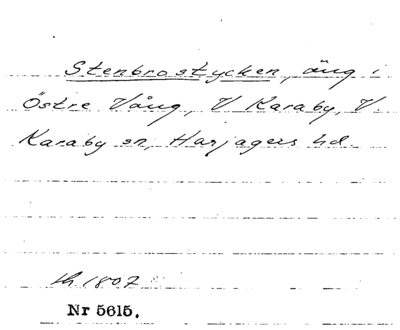 Stenbrostycken, äng i
Östre Vång, V Karaby, V.
Karaby sn, Harjagers hd.
lh 1807
Nr 5615.